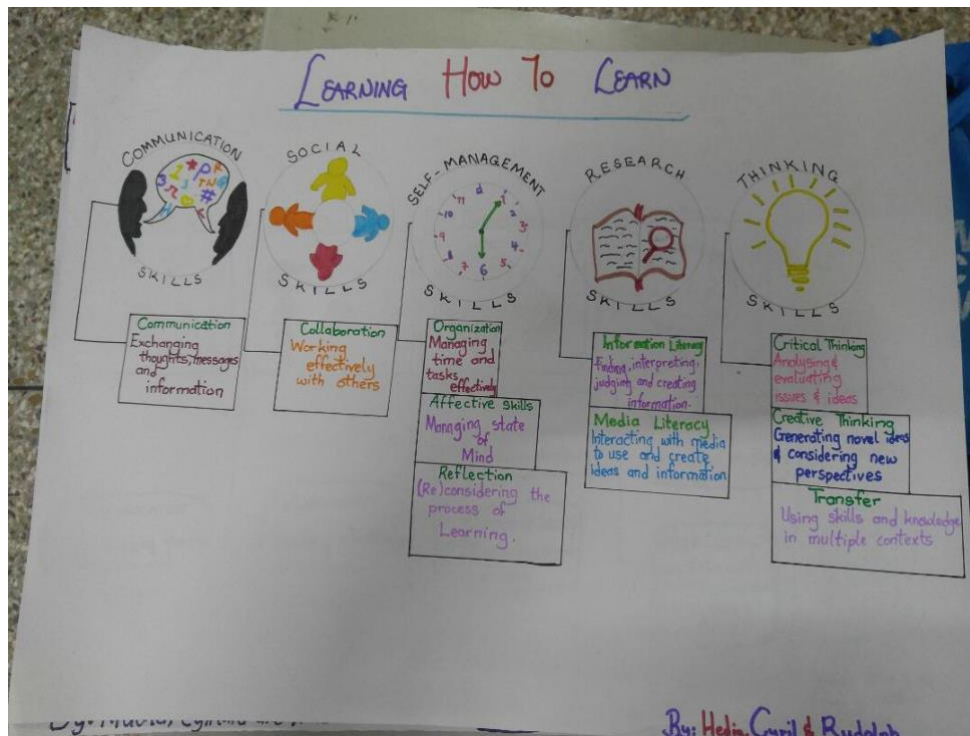 LEARNING HOW TO LEARN
COMMUNICATION
SKILLS
SOCIAL
SKILLS
SELF-MANAGEMENT
SKILLS
RESEARCH
SKILLS
THINKING
SKILLS
Communication
Exchanging
thoughts, messages
and
information
Collaboration
Working
effectively
with others
Organization
Managing
time and
tasks
effectively
Affective Skills
Managing state
of
Mind
Reflection
(Re)considering the
process of
Learning.
Information Literacy
Finding, interpreting,
judging and creating
information.
Media Literacy
Interacting with media
to use and create
ideas and information
Critical Thinking
Analysing &
evaluating
issues & ideas
Creative Thinking
Generating novel ideas
& considering new
perspectives
Transfer
Using skills and knowledge
in multiple contexts
By:
By: Hedia, Cyril & Rudolph